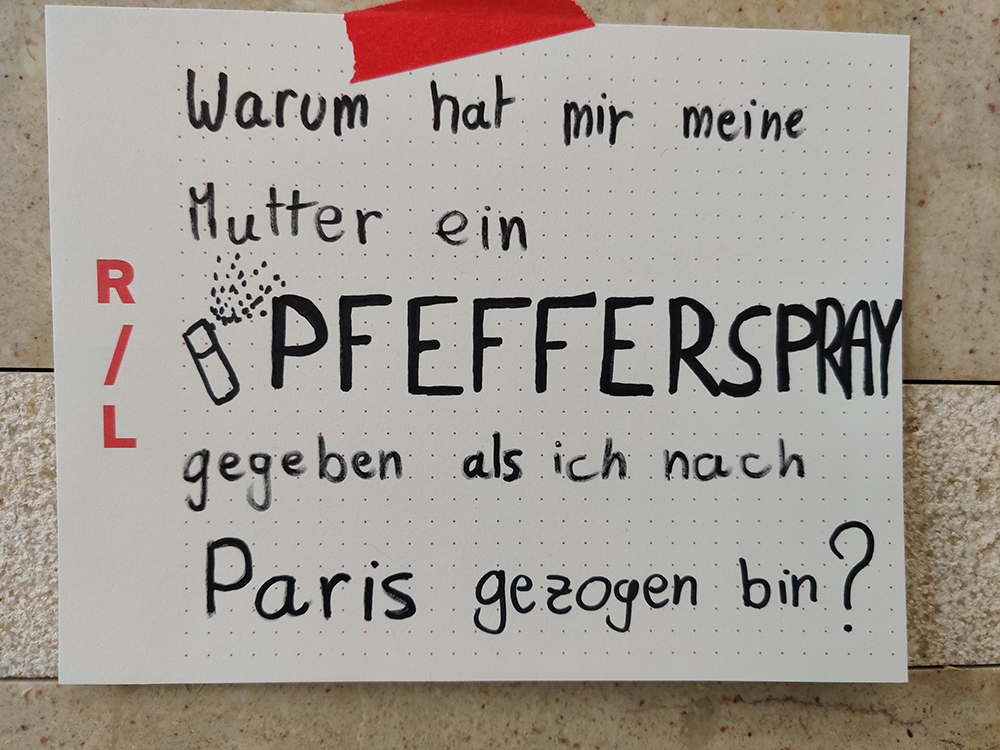 Warum hat mir meine
Mutter ein
PFEFFERSPRAY
gegeben als ich nach
Paris gezogen bin?
R
/
L